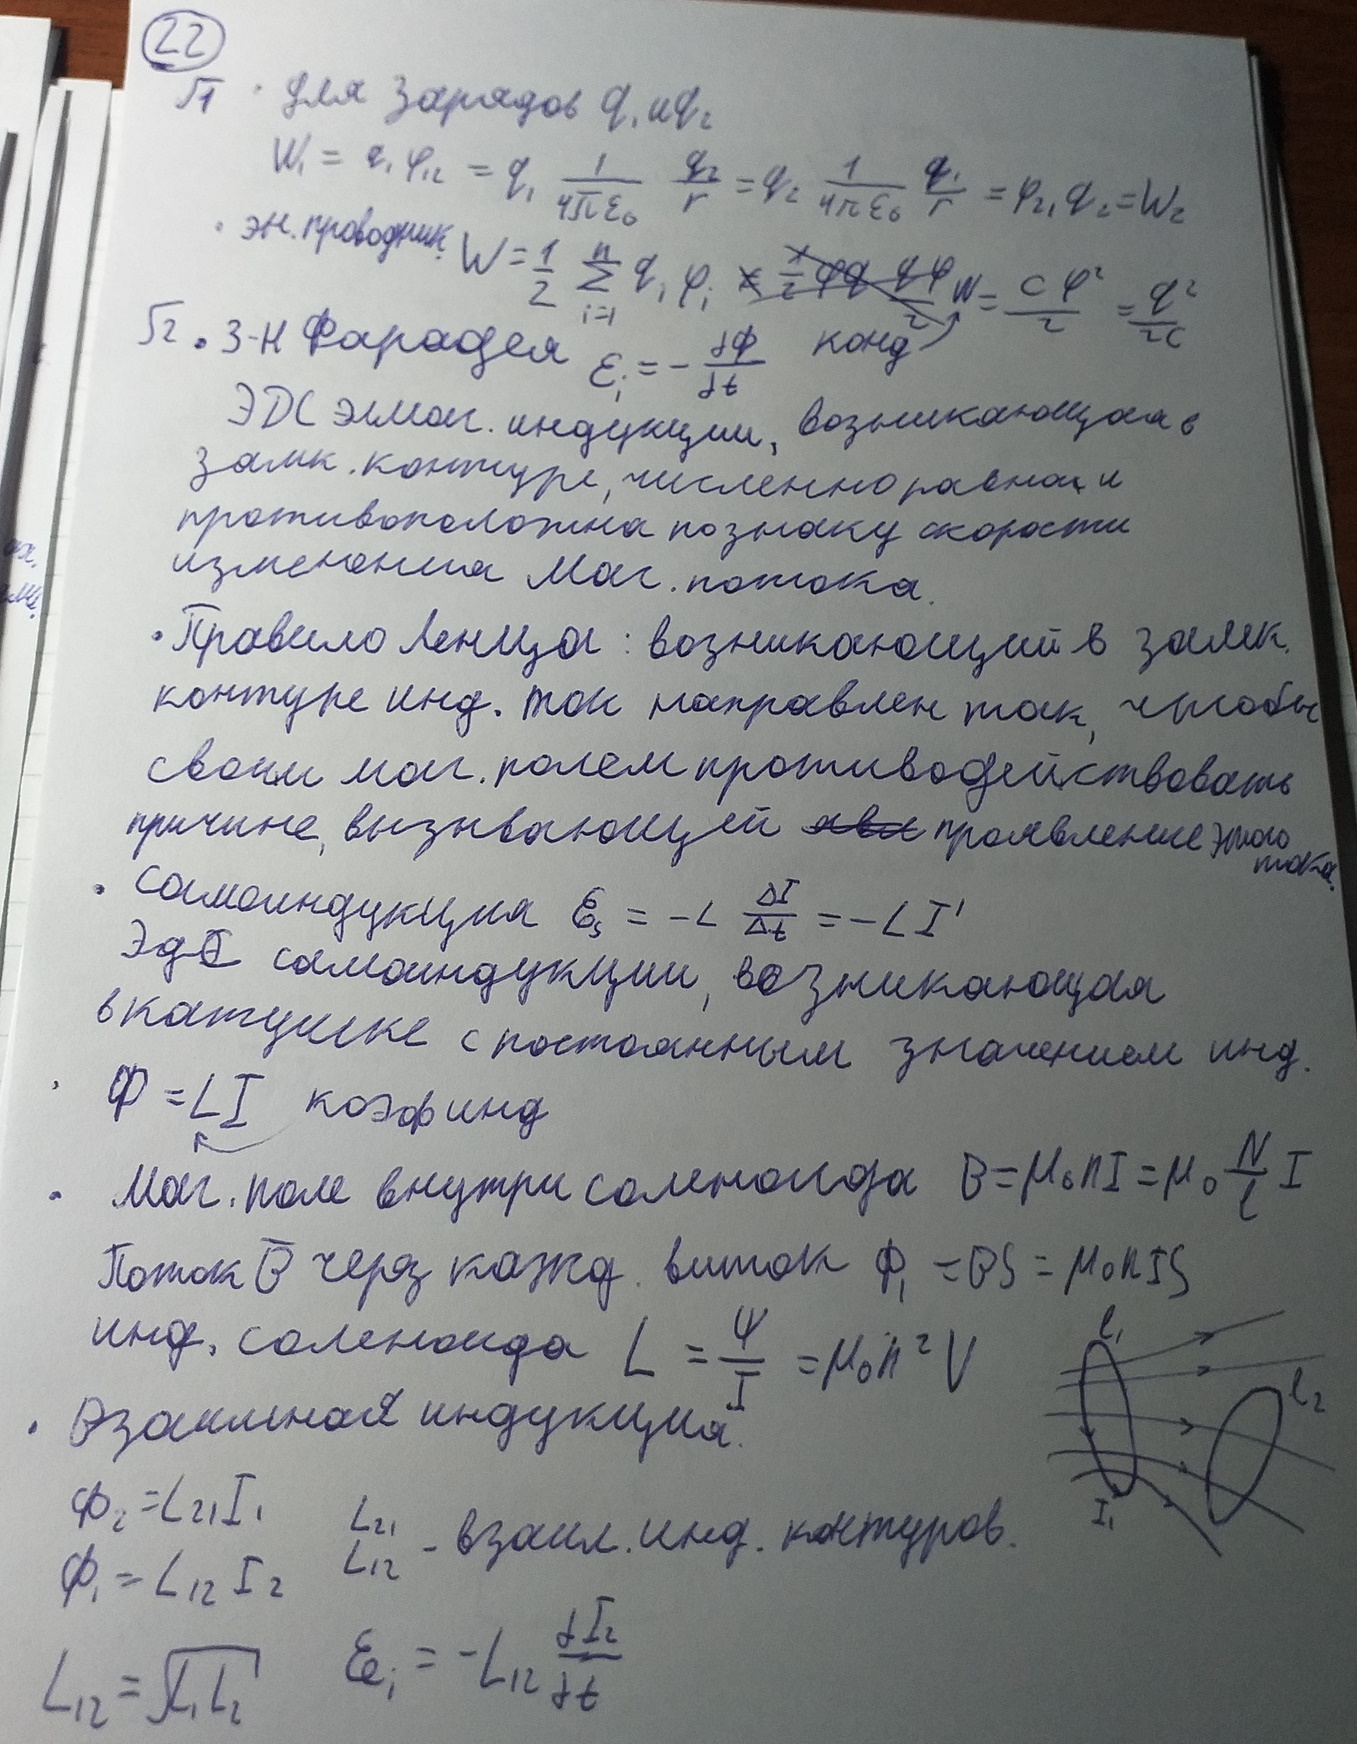 22
Г1 · для зарядов q₁ и q₂
W₁ = q₁ φ₁₂ = q₁ 1/(4πε₀) q₂/r = q₂ 1/(4πε₀) q₁/r = φ₂₁ q₂ = W₂
· эн. проводник. W = 1/2 Σ(i=1, n) qᵢ φᵢ W = Cφ²/2 = q²/2C
Г2 · З-н Фарадея ℰᵢ = - dФ/dt конд
ЭДС эл маг. индукции, возникающая в
замк. контуре, численно равна и
противоположна по знаку скорости
изменения маг. потока.
· Правило Ленца: возникающий в замк.
контуре инд. ток направлен так, чтобы
своим маг. полем противодействовать
причине, вызывающей проявление этого
тока.
· самоиндукция ℰₛ = -L ΔI/Δt = -LI'
ЭДС самоиндукции, возникающая
в катушке с постоянным значением инд.
· Ф = LI коэф инд
· Маг. поле внутри соленоида B = μ₀nI = μ₀ N/l I
Поток B̄ черз кажд. виток Ф₁ = BS = μ₀nIS
инд. соленоида L = Ψ/I = μ₀n²V
l₁
l₂
I₁
· Взаимная индукция.
Ф₂ = L₂₁I₁
Ф₁ = L₁₂I₂
L₂₁
L₁₂ - взаим. инд. контуров.
L₁₂ = √(L₁L₂) ℰᵢ = -L₁₂ dI₂/dt